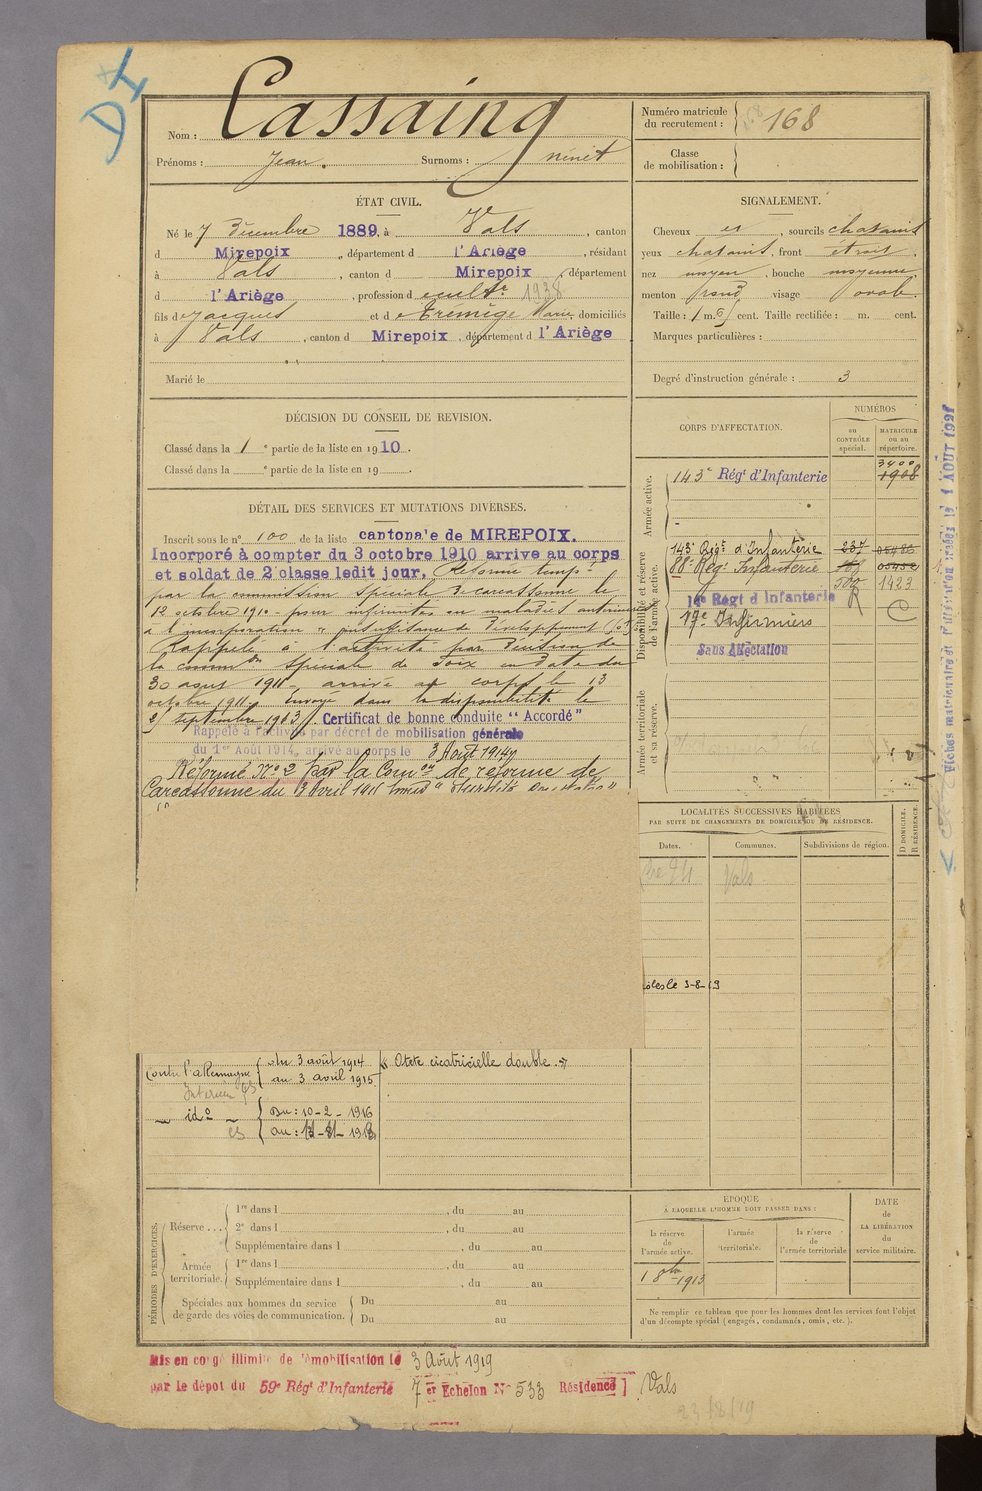 DI
Nom : Cassaing
Prénoms : Jean. Surnoms : ninet
Numéro matricule du recrutement : 168
Classe de mobilisation :
ÉTAT CIVIL.
Né le 7 Décembre 1889, à Vals, canton
d Mirepoix, département d l'Ariège, résidant
à Vals, canton d Mirepoix, département
d l'Ariège, profession d cult.r 1938
fils de Jacques et de Tremège Marie, domiciliés
à Vals, canton d Mirepoix, département d l'Ariège
Marié le
SIGNALEMENT.
Cheveux et, sourcils chatains
yeux chatains, front étroit.
nez moyen, bouche moyenne.
menton rond visage ovale.
Taille : 1 m. 65 cent. Taille rectifiée : m. cent.
Marques particulières :
Degré d'instruction générale : 3
DÉCISION DU CONSEIL DE REVISION.
Classé dans la 1e partie de la liste en 1910.
Classé dans la e partie de la liste en 19 .
DÉTAIL DES SERVICES ET MUTATIONS DIVERSES.
Inscrit sous le n° 100 de la liste cantonale de MIREPOIX.
Incorporé à compter du 3 octobre 1910 arrive au corps
et soldat de 2 classe ledit jour. Réformé temp.t
par la commission spéciale de carcassonne le
12 octobre 1910 pour infirmités ou maladies antérieures
à l'incorporation « insuffisance de développement
Rappelé à l'activité par Décision de
la comm.on spéciale de Foix en date du
30 aout 1911 arrivé au corps le 13
octobre 1911. Envoyé dans la disponibilité le
septembre 1913. Certificat de bonne conduite "Accordé"
Rappelé à l'activité par décret de mobilisation générale
du 1er Août 1914, arrivé au corps le 3 Août 1914
Réformé N° 2 par la Com.on de réforme de
Carcassonne du 3 Avril 1915
CORPS D'AFFECTATION.
NUMÉROS
au CONTRÔLE spécial.
MATRICULE ou au répertoire.
Armée active.
143e Régt d'Infanterie 3400 1908
Disponibilité et réserve de l'armée active.
143e Régt d'Infanterie 237
88e Rég. Infanterie
1423
14e Régt d'Infanterie R C
17e Infirmiers
Sans Affectation
Armée territoriale et sa réserve.
LOCALITÉS SUCCESSIVES HABITÉES
PAR SUITE DE CHANGEMENTS DE DOMICILE OU DE RÉSIDENCE.
Dates. Communes. Subdivisions de région. D DOMICILE. R RÉSIDENCE.
Vals
ôles le 3-8-19
contre l'allemagne du 3 août 1914 au 3 avril 1915
Intérieur
id° Du : 10-2-1916
« Otite cicatricielle double. »
PÉRIODES D'EXERCICES.
Réserve...
1re dans l , du au
2e dans l , du au
Supplémentaire dans l , du au
Armée territoriale.
1re dans l , du au
Supplémentaire dans l , du au
Spéciales aux hommes du service de garde des voies de communication.
Du au
Du au
ÉPOQUE
À LAQUELLE L'HOMME DOIT PASSER DANS :
la réserve de l'armée active.
l'armée territoriale.
la réserve de l'armée territoriale
DATE de LA LIBÉRATION du service militaire.
1 8bre 1913
Ne remplir ce tableau que pour les hommes dont les services font l'objet
d'un décompte spécial (engagés, condamnés, omis, etc.).
Mis en congé illimité de démobilisation le 3 Août 1919
par le dépot du 59e Régt d'Infanterie 7 et Echelon N° 533 Résidence Vals
23/8/19